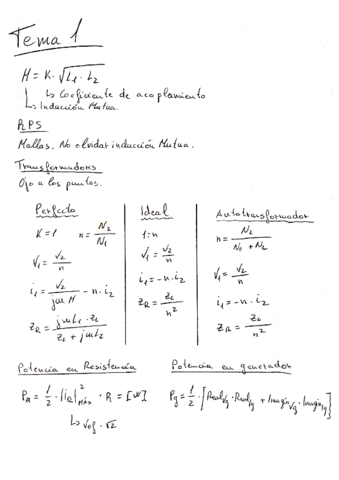 Tema 1
M = K · √L₁ · L₂
↳ Coeficiente de acoplamiento
↳ Inducción Mutua.
RPS
Mallas. No olvidar inducción Mutua.
Transformadores
Ojo a los puntos.
Perfecto
K = 1 n = N₂/N₁
V₁ = V₂/n
i₁ = V₂/jωM - n·i₂
Z_R = jωL₁·Z_L/Z_L + jωL₂
Ideal
1:n
V₁ = V₂/n
i₁ = -n·i₂
Z_R = Z_L/n²
Autotransformador
n = N₂/N₁ + N₂
V₁ = V₂/n
i₁ = -n·i₂
Z_R = Z_L/n²
Potencia en Resistencia
P_R = 1/2 · |i_R|²máx · R = [W]
↳ Vef · √2
Potencia en generador
Pg = 1/2 · [Real_Vg · Real_Ig + Imagin_Vg · Imagin_Ig]